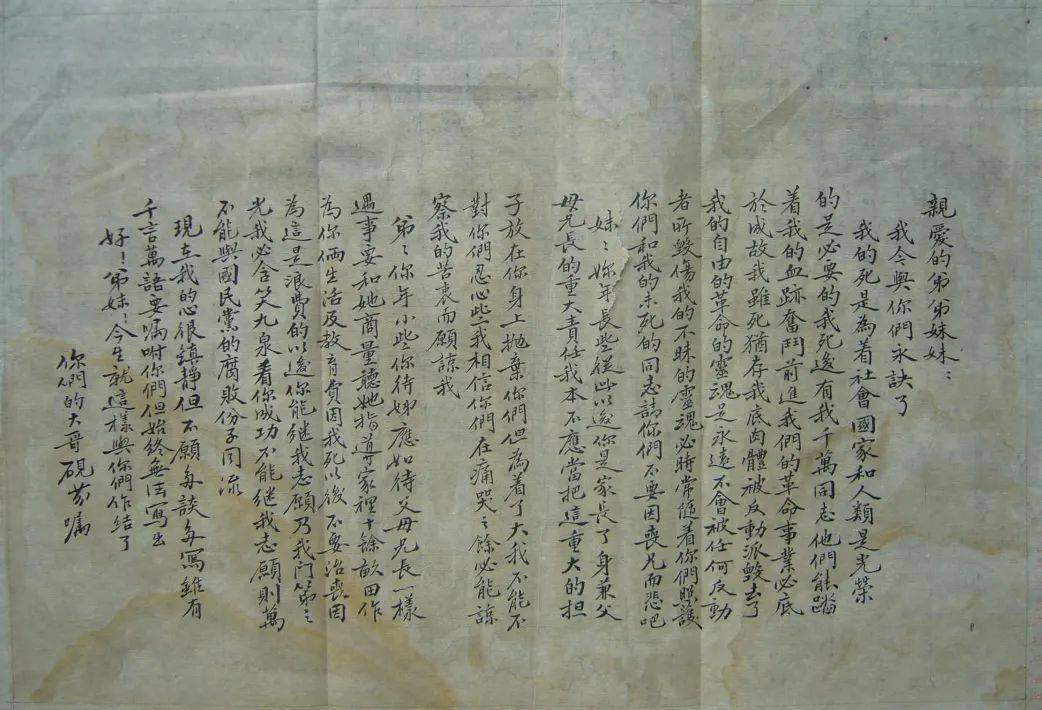 親愛的弟弟妹妹：
我今與你們永訣了
我的死是為着社會國家和人類是光榮
的是必要的我死後有我千萬同志他們能踏
着我的血跡奮鬥前進我們的革命事業必底
於成故我雖死猶存我底肉體被反動派毀去了
我的自由的革命的靈魂是永遠不會被任何反動
者所毀傷我的不昧的靈魂必時常隨着你們照護
你們和我的未死的同志請你們不要因喪兄而悲吧
妹〻妳年長些從此以後你是家長了身兼父
母兄長的重大責任我本不應當把這重大的担
子放在你身上抛棄你們但為着了大我不能不
對你們忍心些我相信你們在痛哭之餘必能諒
察我的苦衷而願諒我
弟〻你年小些你待姊應如待父母兄長一樣
遇事要和她商量聽她指導家裡十餘畝田作
為你倆生活及教育費因我死以後不要治喪因
為這是浪費的以後你能繼我志願乃我门第之
光我必含笑九泉看你成功不能繼我志願則萬
不能與國民黨的腐敗份子同流
現在我的心很鎮靜但不願多談多寫雖有
千言萬語要囑咐你們但始終無法寫出
好！弟妹！今生就這樣與你們作結了
你們的大哥硯芬囑